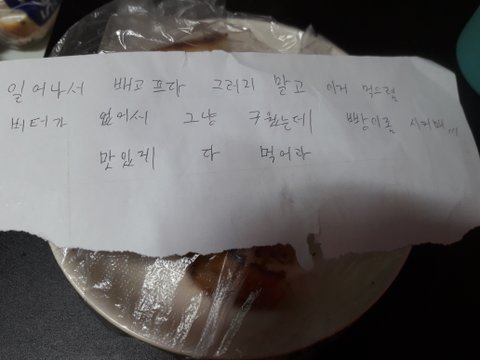 일어나서 배고프다 그러지 말고 이거 먹으렴
버터가 없어서 그냥 구웠는데 빵이름
맛있게 다 먹어라